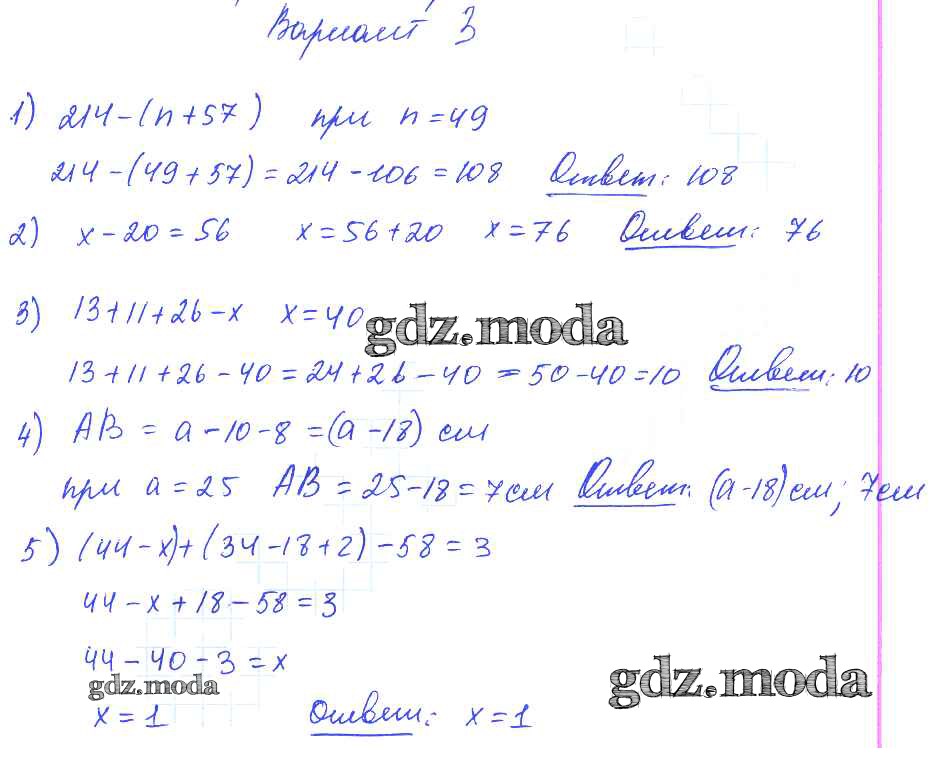 Вариант 3
1) 214-(n+57) при n=49
214-(49+57)=214-106=108 Ответ: 108
2) x-20=56 x=56+20 x=76 Ответ: 76
3) 13+11+26-x x=40
gdz.moda
13+11+26-40=24+26-40=50-40=10 Ответ: 10
4) AB = a-10-8=(a-18) см
при a=25 AB=25-18=7см Ответ: (a-18)см; 7см
5) (44-x)+(34-18+2)-58=3
44-x+18-58=3
44-40-3=x
gdz.moda
gdz.moda
x=1 Ответ: x=1